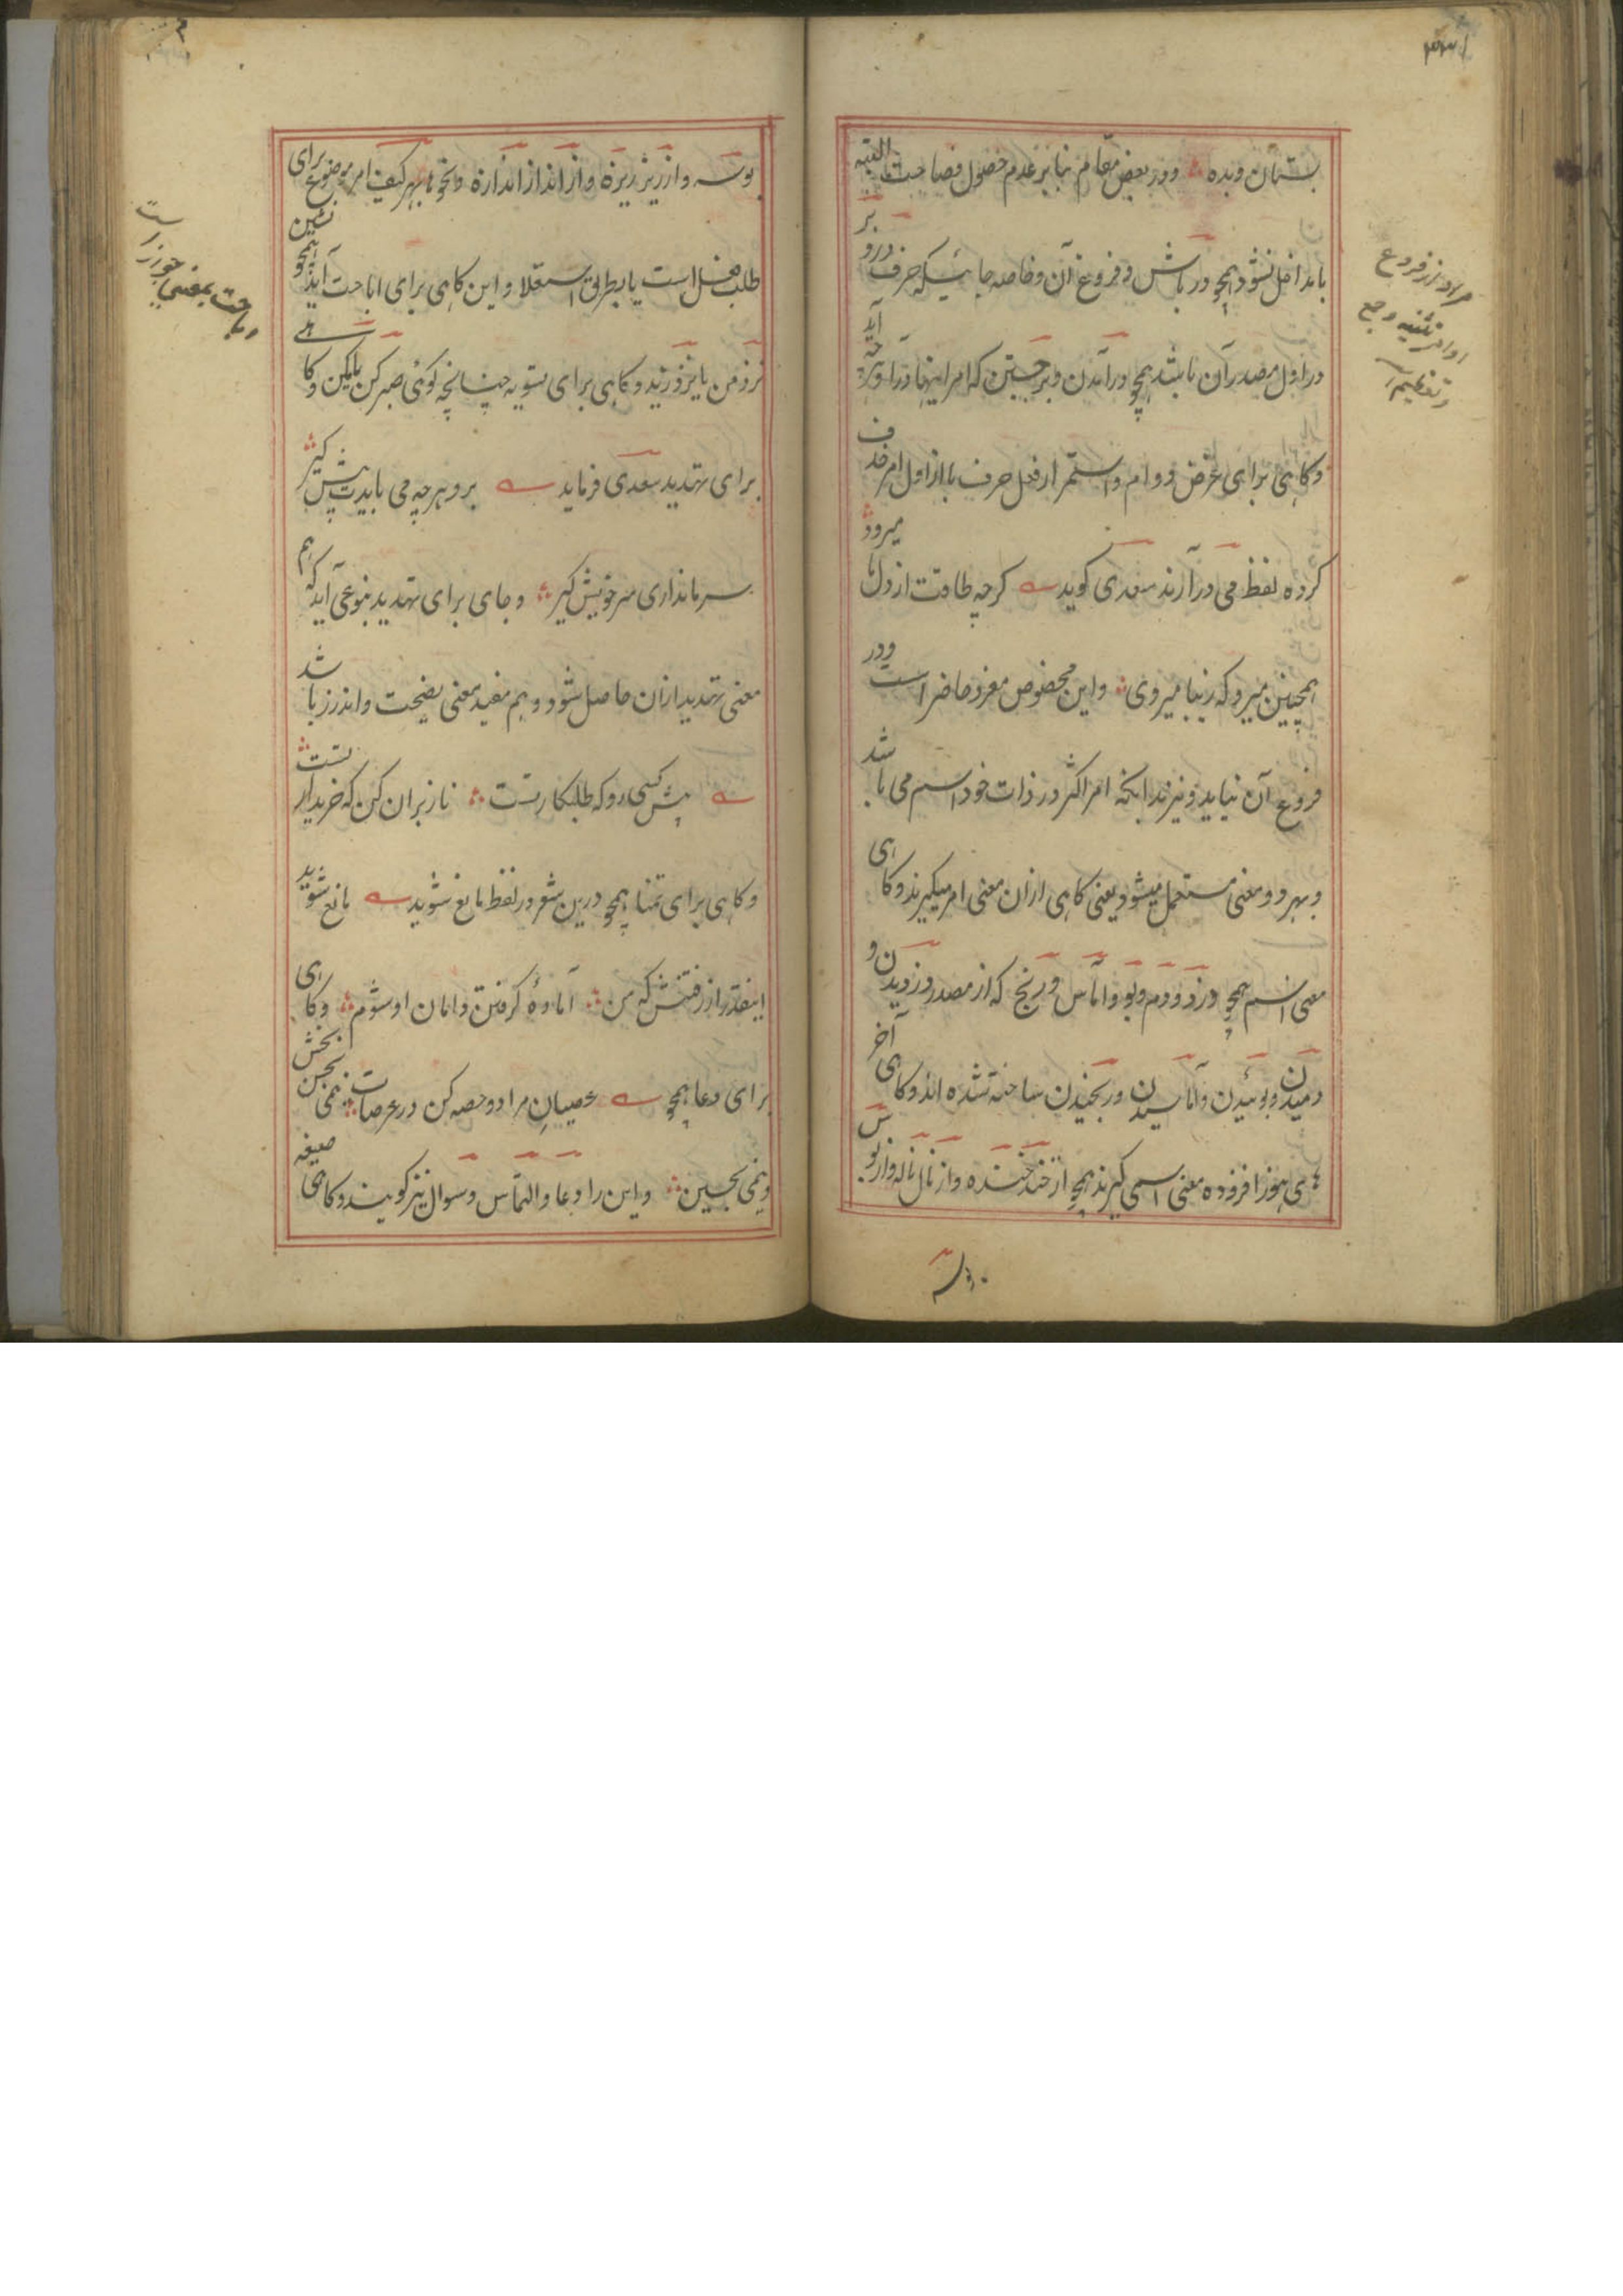 بستان و بده و در بعض مقام بنابر عدم حصول فصاحت البته
با داخل نشود همچو در باش و فروع آن و خاصه جائیکه حرف در و بر
در اول مصدر آن باشد همچو در آمدن و برجستن که امر اینها در آ و برجه آید
و کاهی برای غرض دوام و استمرار فعل حرف با از اول امر حذف
کرده لفظ می در آرند سعدی کوید کرچه طاقت از دل ما میرود
همچنین میرو که زیبا میروی و این مخصوص مفرد حاضر است و در
فروع آن نیاید و نیز بدانکه امر اکثر در ذات خود اسم می باشد
و بهر دو معنی مستعمل میشود یعنی کاهی ازان معنی امر میکیرند و کاهی
معنی اسم همچو دزد و دم و بو و آماس و رنج که از مصدر دزدیدن و
دمیدن و بوئیدن و آماسیدن و رنجیدن ساخته شده اند و کاهی آخر
های هوز افزوده معنی اسمی کیرند همچو از خند خنده و از نال ناله و از بوس
مراد از فروع
اوامر تثنیه و جمع
و تعظیم
بوسه و از ریز ریزه و از انداز اندازه و نحوها بهر کیف امر موضوع برای
طلب فعل است یا بطریق استعلا و این کاهی برای اباحت آید همچو نشین
نزد من یا نزد زید و کاهی برای تسویه چنانچه کوئی صبر کن یا مکن و کاهی
برای تهدید سعدی فرماید برو هر چه می بایدت پیش کیر
سر ما نداری سر خویش کیر و جای برای تهدید بنوعی آید که هم
معنی تهدید ازان حاصل شود و هم مفید معنی نصیحت و اندرز باشد
پیش کسی رو که طلبکار تست ناز بران کن که خریدار تست
و کاهی برای تمنا همچو درین شعر در لفظ مانع شوید مانع شوید
اینقدر از رفتنش که من آماده کرفتن دامان او شوم و کاهی
برای دعا همچو عصیان مرا دو حصه کن در عرصات نیمی بحسن بخش
و نیمی بحسین و این را دعا و التماس و سوال نیز کویند و کاهی صیغه
اباحت بمعنی جواز است